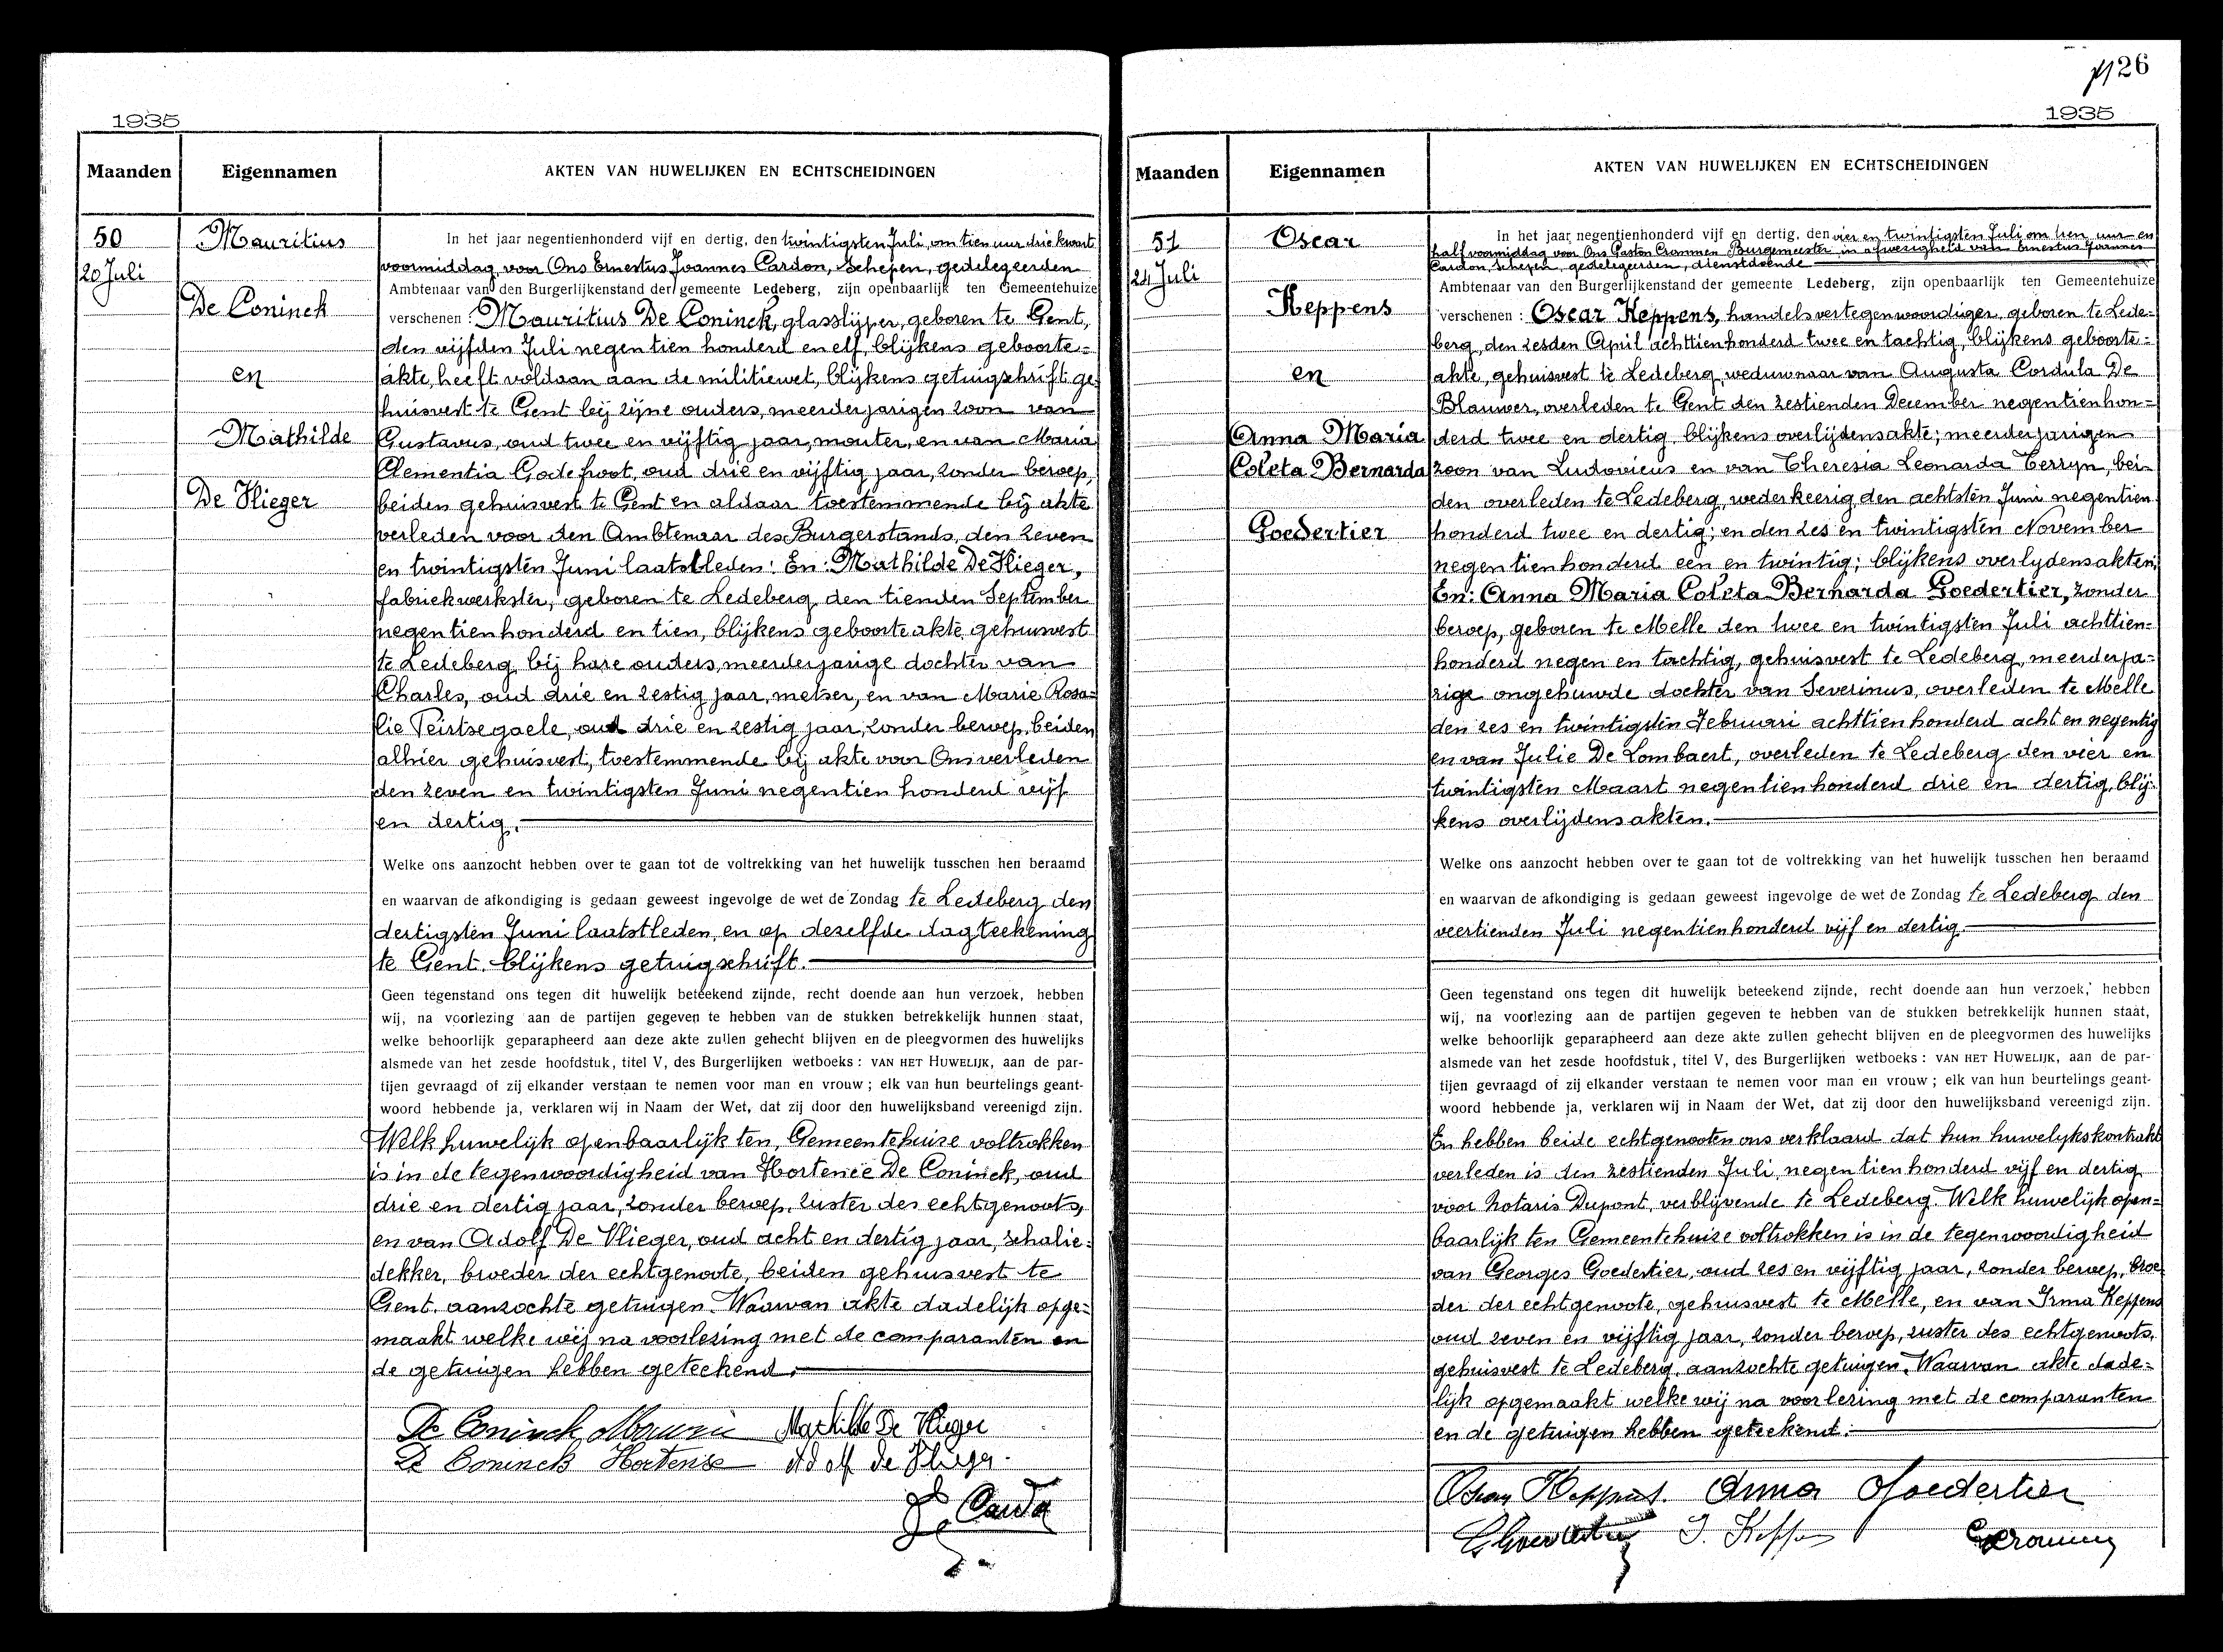 1935
Maanden
Eigennamen
AKTEN VAN HUWELIJKEN EN ECHTSCHEIDINGEN
50
20 Juli
Mauritius
De Coninck
en
Mathilde
De Vlieger
In het jaar negentienhonderd vijf en dertig, den twintigsten Juli, om tien uur drie kwart
voormiddag, voor Ons Ernestus Joannes Cardon, Schepen, gedelegeerden
Ambtenaar van den Burgerlijkenstand der gemeente Ledeberg, zijn openbaarlijk ten Gemeentehuize
verschenen : Mauritius De Coninck, glasslijper, geboren te Gent,
den vijfden Juli negentien honderd en elf, blijkens geboorte=
akte, heeft voldaan aan de militiewet, blijkens getuigschrift ge=
huisvest te Gent bij zijne ouders, meerderjarigen zoon van
Gustavus, oud twee en vijftig jaar, mouter, en van Maria
Clementia Godefroot, oud drie en vijftig jaar, zonder beroep,
beiden gehuisvest te Gent en aldaar toestemmende bij akte
verleden voor den Ambtenaar des Burgerstands, den zeven
en twintigsten Juni laatstleden: En: Mathilde De Vlieger,
fabriekwerkster, geboren te Ledeberg den tienden September
negentienhonderd en tien, blijkens geboorteakte, gehuisvest
te Ledeberg bij hare ouders, meerderjarige dochter van
Charles, oud drie en zestig jaar, metser, en van Marie Rosa=
lie Teirtsegaele, oud drie en zestig jaar, zonder beroep, beiden
alhier gehuisvest, toestemmende bij akte voor Ons verleden
den zeven en twintigsten Juni negentien honderd vijf
en dertig.
Welke ons aanzocht hebben over te gaan tot de voltrekking van het huwelijk tusschen hen beraamd
en waarvan de afkondiging is gedaan geweest ingevolge de wet de Zondag te Ledeberg den
dertigsten Juni laatstleden, en op dezelfde dagteekening
te Gent. blijkens getuigschrift.
Geen tegenstand ons tegen dit huwelijk beteekend zijnde, recht doende aan hun verzoek, hebben
wij, na voorlezing aan de partijen gegeven te hebben van de stukken betrekkelijk hunnen staat,
welke behoorlijk geparapheerd aan deze akte zullen gehecht blijven en de pleegvormen des huwelijks
alsmede van het zesde hoofdstuk, titel V, des Burgerlijken wetboeks : VAN HET HUWELIJK, aan de par-
tijen gevraagd of zij elkander verstaan te nemen voor man en vrouw ; elk van hun beurtelings geant-
woord hebbende ja, verklaren wij in Naam der Wet, dat zij door den huwelijksband vereenigd zijn.
Welk huwelijk openbaarlijk ten Gemeentehuize voltrokken
is in de tegenwoordigheid van Hortence De Coninck, oud
drie en dertig jaar, zonder beroep, zuster des echtgenoots,
en van Adolf De Vlieger, oud acht en dertig jaar, schalie=
dekker, broeder der echtgenoote, beiden gehuisvest te
Gent. aanzochte getuigen. Waarvan akte dadelijk opge=
maakt welke wij na voorlezing met de comparanten en
de getuigen hebben geteekend.
De Coninck Mathilde De Vlieger
De Coninck Hortense Adolf de Vlieger
Cardon
126
1935
Maanden
Eigennamen
AKTEN VAN HUWELIJKEN EN ECHTSCHEIDINGEN
51
24 Juli
Oscar
Keppens
en
Anna Maria
Coleta Bernarda
Goedertier
In het jaar negentienhonderd vijf en dertig, den vier en twintigsten Juli om tien uur en
half voormiddag voor Ons Gaston Crommen Burgemeester in afwezigheid van Ernestus Joannes
Cardon, schepen, gedelegeerden, dienstdoende
Ambtenaar van den Burgerlijkenstand der gemeente Ledeberg, zijn openbaarlijk ten Gemeentehuize
verschenen : Oscar Keppens, handelsvertegenwoordiger, geboren te Lede=
berg, den zesden April achttienhonderd twee en tachtig, blijkens geboorte=
akte, gehuisvest te Ledeberg, weduwnaar van Augusta Cordula De
Blauwer, overleden te Gent den zestienden December negentienhon=
derd twee en dertig, blijkens overlijdensakte; meerderjarigen
zoon van Ludovicus en van Theresia Leonarda Terryn, bei=
den overleden te Ledeberg, wederkeerig den achtsten Juni negentien
honderd twee en dertig; en den zes en twintigsten November
negentienhonderd een en twintig; blijkens overlydensakten;
En: Anna Maria Coleta Bernarda Goedertier, zonder
beroep, geboren te Melle den twee en twintigsten Juli achttien=
honderd negen en tachtig, gehuisvest te Ledeberg, meerderja=
rige ongehuwde dochter van Severinus, overleden te Melle
den zes en twintigsten Februari achttienhonderd acht en negentig
en van Julie De Lombaert, overleden te Ledeberg den vier en
twintigsten Maart negentienhonderd drie en dertig, blij=
kens overlijdensakten.
Welke ons aanzocht hebben over te gaan tot de voltrekking van het huwelijk tusschen hen beraamd
en waarvan de afkondiging is gedaan geweest ingevolge de wet de Zondag te Ledeberg den
veertienden Juli negentienhonderd vijf en dertig.
Geen tegenstand ons tegen dit huwelijk beteekend zijnde, recht doende aan hun verzoek, hebben
wij, na voorlezing aan de partijen gegeven te hebben van de stukken betrekkelijk hunnen staat,
welke behoorlijk geparapheerd aan deze akte zullen gehecht blijven en de pleegvormen des huwelijks
alsmede van het zesde hoofdstuk, titel V, des Burgerlijken wetboeks : VAN HET HUWELIJK, aan de par-
tijen gevraagd of zij elkander verstaan te nemen voor man en vrouw ; elk van hun beurtelings geant-
woord hebbende ja, verklaren wij in Naam der Wet, dat zij door den huwelijksband vereenigd zijn.
En hebben beide echtgenooten ons verklaard dat hun huwelykskontrakt
verleden is den zestienden Juli negentienhonderd vijf en dertig
voor Notaris Dupont, verblijvende te Ledeberg. Welk huwelijk open=
baarlijk ten Gemeentehuize voltrokken is in de tegenwoordigheid
van Georges Goedertier, oud zes en vijftig jaar, zonder beroep, broe=
der der echtgenoote, gehuisvest te Melle, en van Irma Keppens
oud zeven en vijftig jaar, zonder beroep, zuster des echtgenoots,
gehuisvest te Ledeberg, aanzochte getuigen. Waarvan akte dade=
lijk opgemaakt welke wij na voorlezing met de comparanten
en de getuigen hebben geteekend.
Oscar Keppens. Anna Goedertier
G Goedertier I. Keppens